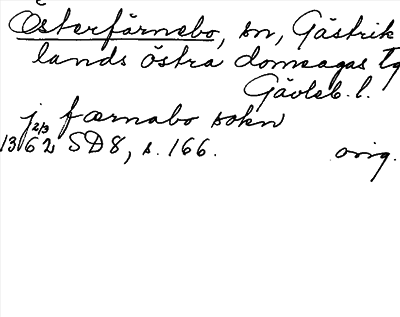 Österfärnebo, sn, Gästrik
lands östra domsagas tg
Gävleb. l.
j færnabo sokn
2/3
1362 SD8, s. 166. orig.